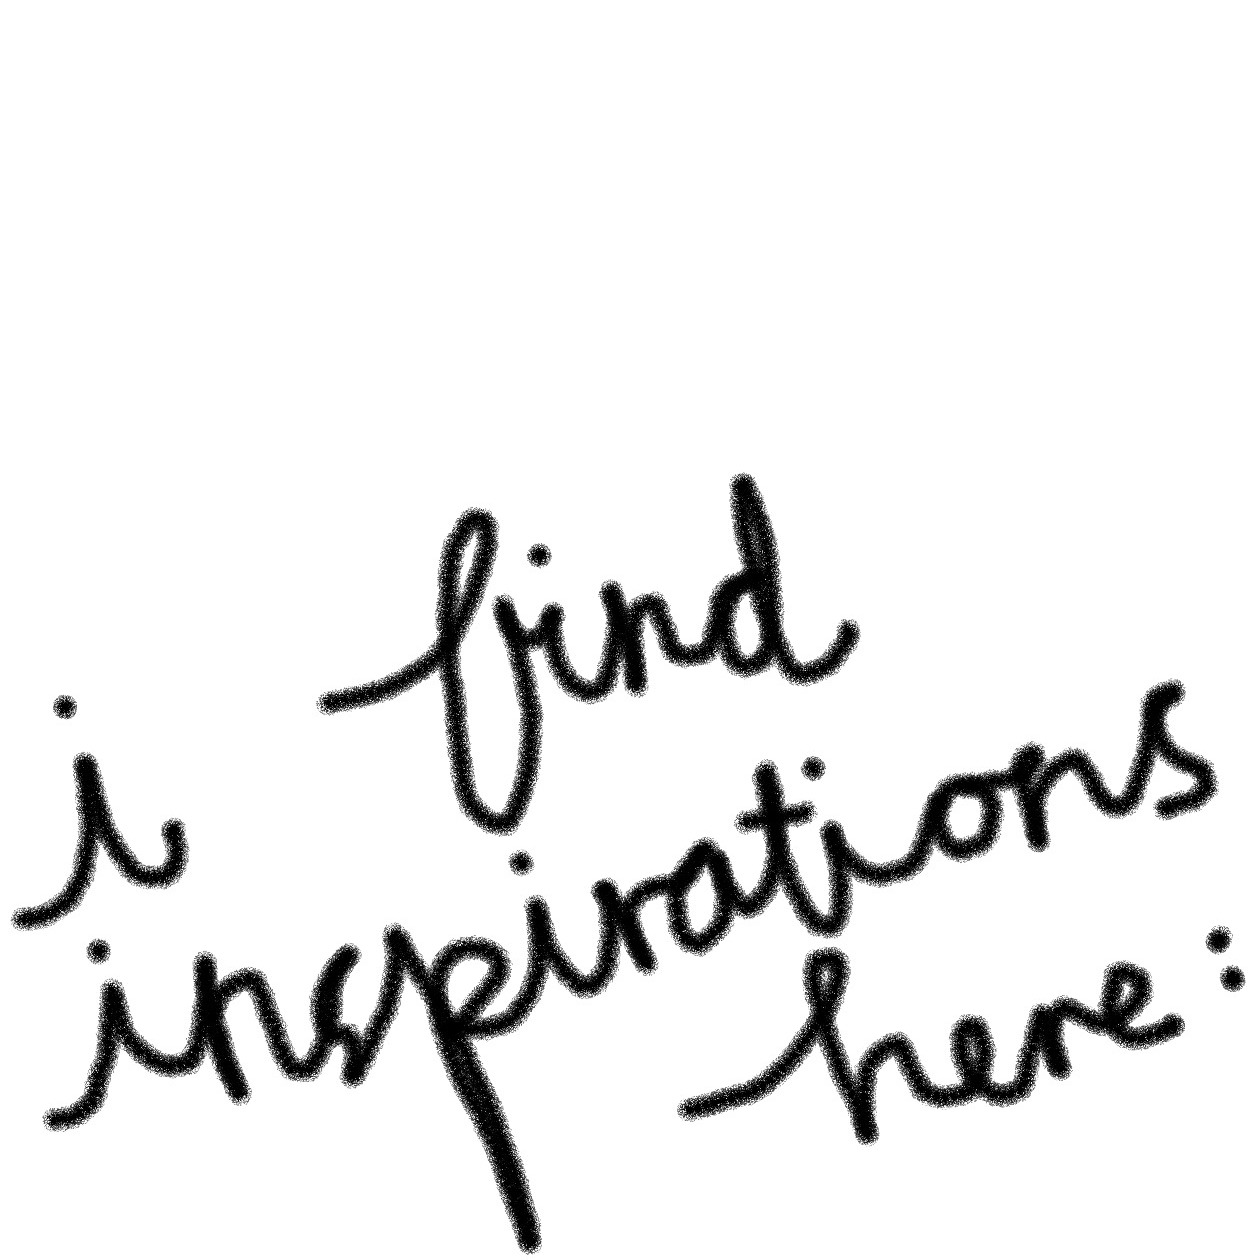 i find
inspirations
here: